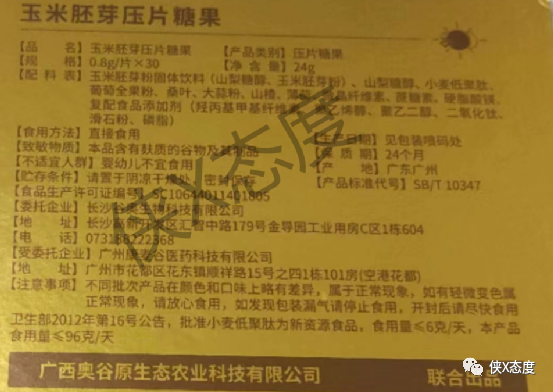 玉米胚芽压片糖果
【品 名】玉米胚芽压片糖果 【产品类别】压片糖果
【规 格】0.8g/片×30 【净 含 量】24g
【配 料 表】玉米胚芽粉固体饮料（山梨糖醇、玉米胚芽粉）、山梨糖醇、小麦低聚肽、
葡萄全果粉、桑叶、大蒜粉、山楂、薄荷、微晶纤维素、蔗糖素、硬脂酸镁、
复配食品添加剂（羟丙基甲基纤维素、聚乙烯醇、聚乙二醇、二氧化钛、
滑石粉、磷脂）
【食用方法】直接食用 【生产日期】见包装喷码处
【致敏物质】本品含有麸质的谷物及其制品 【保 质 期】24个月
【不适宜人群】婴幼儿不宜食用 【产 地】广东广州
【贮存条件】请置于阴凉干燥处，密封保存 【产品标准代号】SB/T 10347
【食品生产许可证编号】SC10644011401805
【委托企业】长沙谷奥生物科技有限公司
【地 址】长沙高新开发区汇智中路179号金导园工业用房C区1栋604
【电 话】073188222368
【受委托企业】广州康麦谷医药科技有限公司
【地 址】广州市花都区花东镇顺祥路15号之四1栋101房(空港花都)
【注意事项】不同批次产品在颜色和口味上略有差异，属于正常现象，如有轻微变色属
正常现象，请放心食用，如发现包装漏气请停止食用，开封后请尽快食用
卫生部2012年第16号公告，批准小麦低聚肽为新资源食品，食用量≤6克/天，本产品
食用量≤96克/天
广西奥谷原生态农业科技有限公司 联合出品
侠X态度
侠X态度